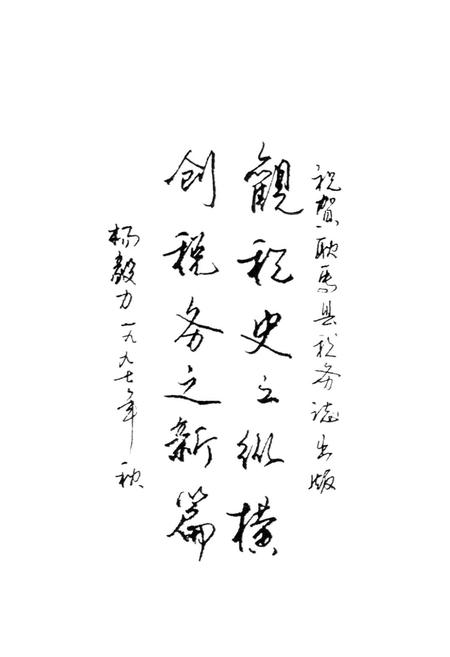 祝贺耿马县税务志出版
觀税史之縱横
创税务之新篇
杨毅力一九九七年秋